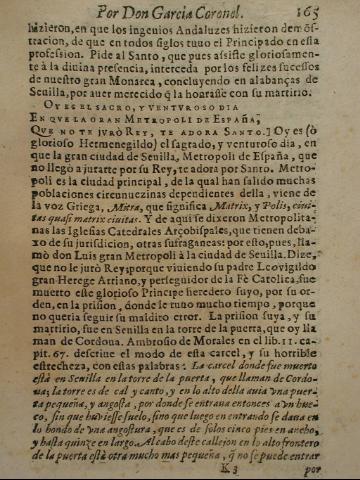 Por Don Garcia Coronel. 165
hizieron, en que los ingenios Andaluzes hizieron demõs-
tracion, de que en todos siglos tuuo el Principado en esta
profession. Pide al Santo, que pues assiste gloriosamen-
te à la diuina presencia, interceda por los felizes sucessos
de nuestro gran Monarca, concluyendo en alabanças de
Seuilla, por auer merecido q̃ la honrasse con su martirio.
OY ES EL SACRO, Y VENTVROSO DIA
EN QVE LA GRAN METROPOLI DE ESPAÑA,
QVE NO TE IVRÒ REY, TE ADORA SANTO.] Oy es (ò
glorioso Hermenegildo) el sagrado, y venturoso dia, en
que la gran ciudad de Seuilla, Metropoli de España, que
no llegò a jurarte por su Rey, te adora por Santo. Metro-
poli es la ciudad principal, de la qual han salido muchas
poblaciones circunuezinas dependientes della, viene de
la voz Griega, Mitra, que significa Matrix, y Polis, ciui-
tas quasi matrix ciuitas. Y de aqui se dixeron Metropolita-
nas las Iglesias Catedrales Arçobispales, que tienen deba-
xo de su jurisdicion, otras sufraganeas: por esto, pues, lla-
mò don Luis gran Metropoli à la ciudad de Seuilla. Dize,
que no le jurò Rey, porque viuiendo su padre Leovigildo
gran Herege Arriano, y perseguidor de la Fè Catolica, fue
muerto este glorioso Principe heredero suyo, por su or-
den, en la prision, donde le tuuo mucho tiempo, porque
no queria seguir su maldito error. La prision suya, y su
martirio, fue en Seuilla en la torre de la puerta, que oy lla
man de Cordoua. Ambrosio de Morales en el lib. 11. ca-
pit. 67. descriue el modo de esta carcel, y su horrible
estrecheza, con estas palabras: La carcel donde fue muerto
està en Seuilla en la torre de la puerta, que llaman de Cordo-
ua; la torre es de cal y canto, y en lo alto della auia vna puer-
ta pequeña, y angosta, por donde se entraua entonces a vn hue-
co, sin que huuiesse suelo, sino que luego en entrando se daua en
lo hondo de vna angostura, que es de solos cinco pies en ancho,
y hasta quinze en largo. Al cabo deste callejon en lo alto frontero
de la puerta està otra mucho mas pequeña, q̃ no se puede entrar
K 3 por